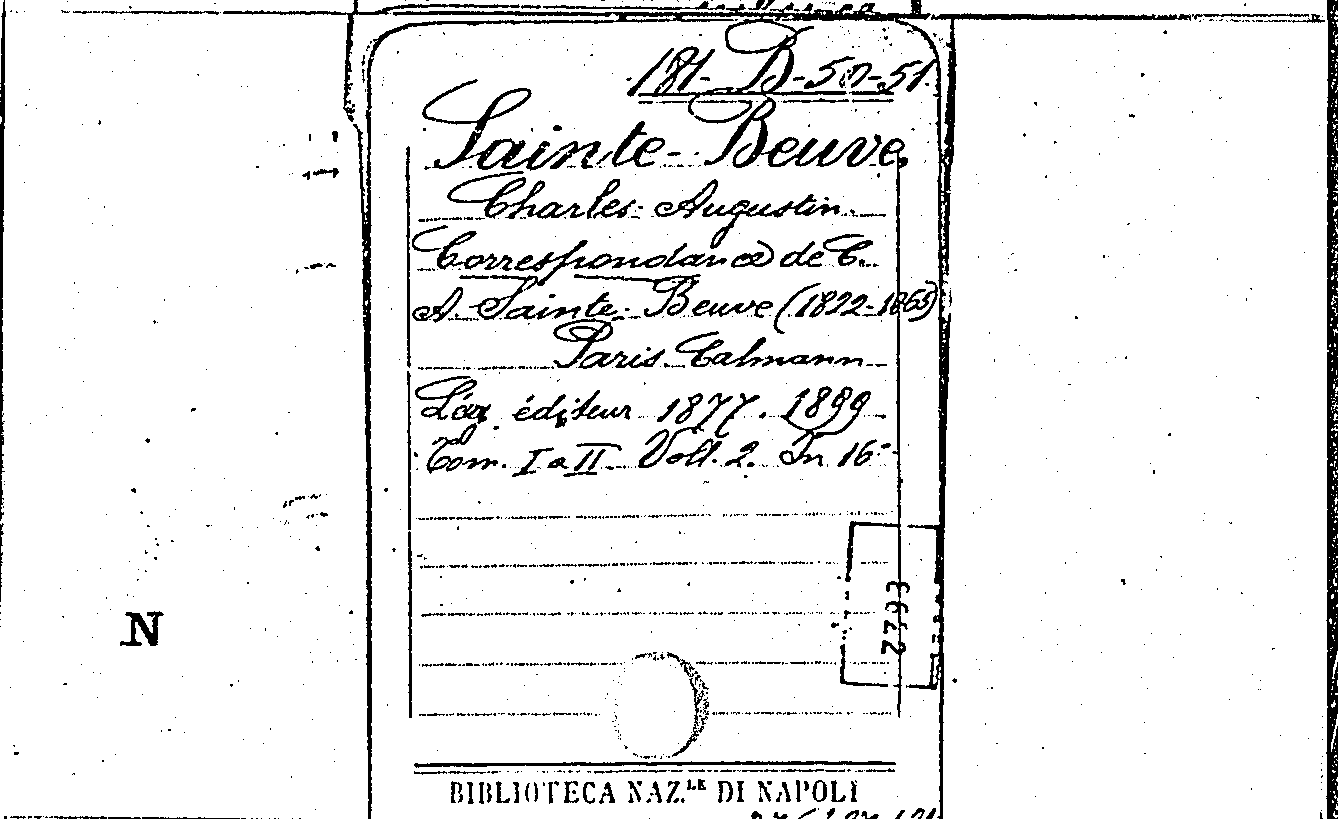 181-B-50-51.
Sainte-Beuve,
Charles-Augustin.
Correspondance de C.
A. Sainte-Beuve (1822-1865)
Paris Calmann
Lév. éditeur 1877. 1899
Tom. I a II Voll. 2. In 16°
2793
N
BIBLIOTECA NAZ.LE DI NAPOLI